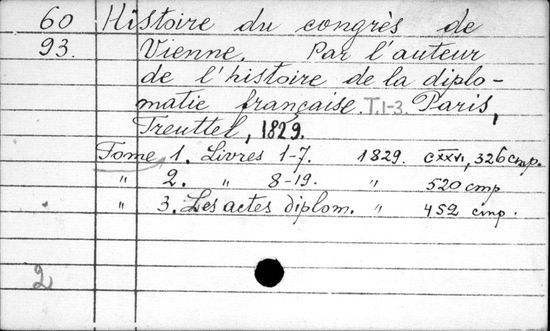 60 Histoire du congrès de
93. Vienne. Par l'auteur
de l'histoire de la diplo-
matie française. T.1-3. Paris,
Treuttel, 1829.
Tome 1. Livres 1-7. 1829. CXXVI, 326 стр.
" 2. " 8-19. " 520 стр
" 3. Les actes diplom. " 452 стр.
2